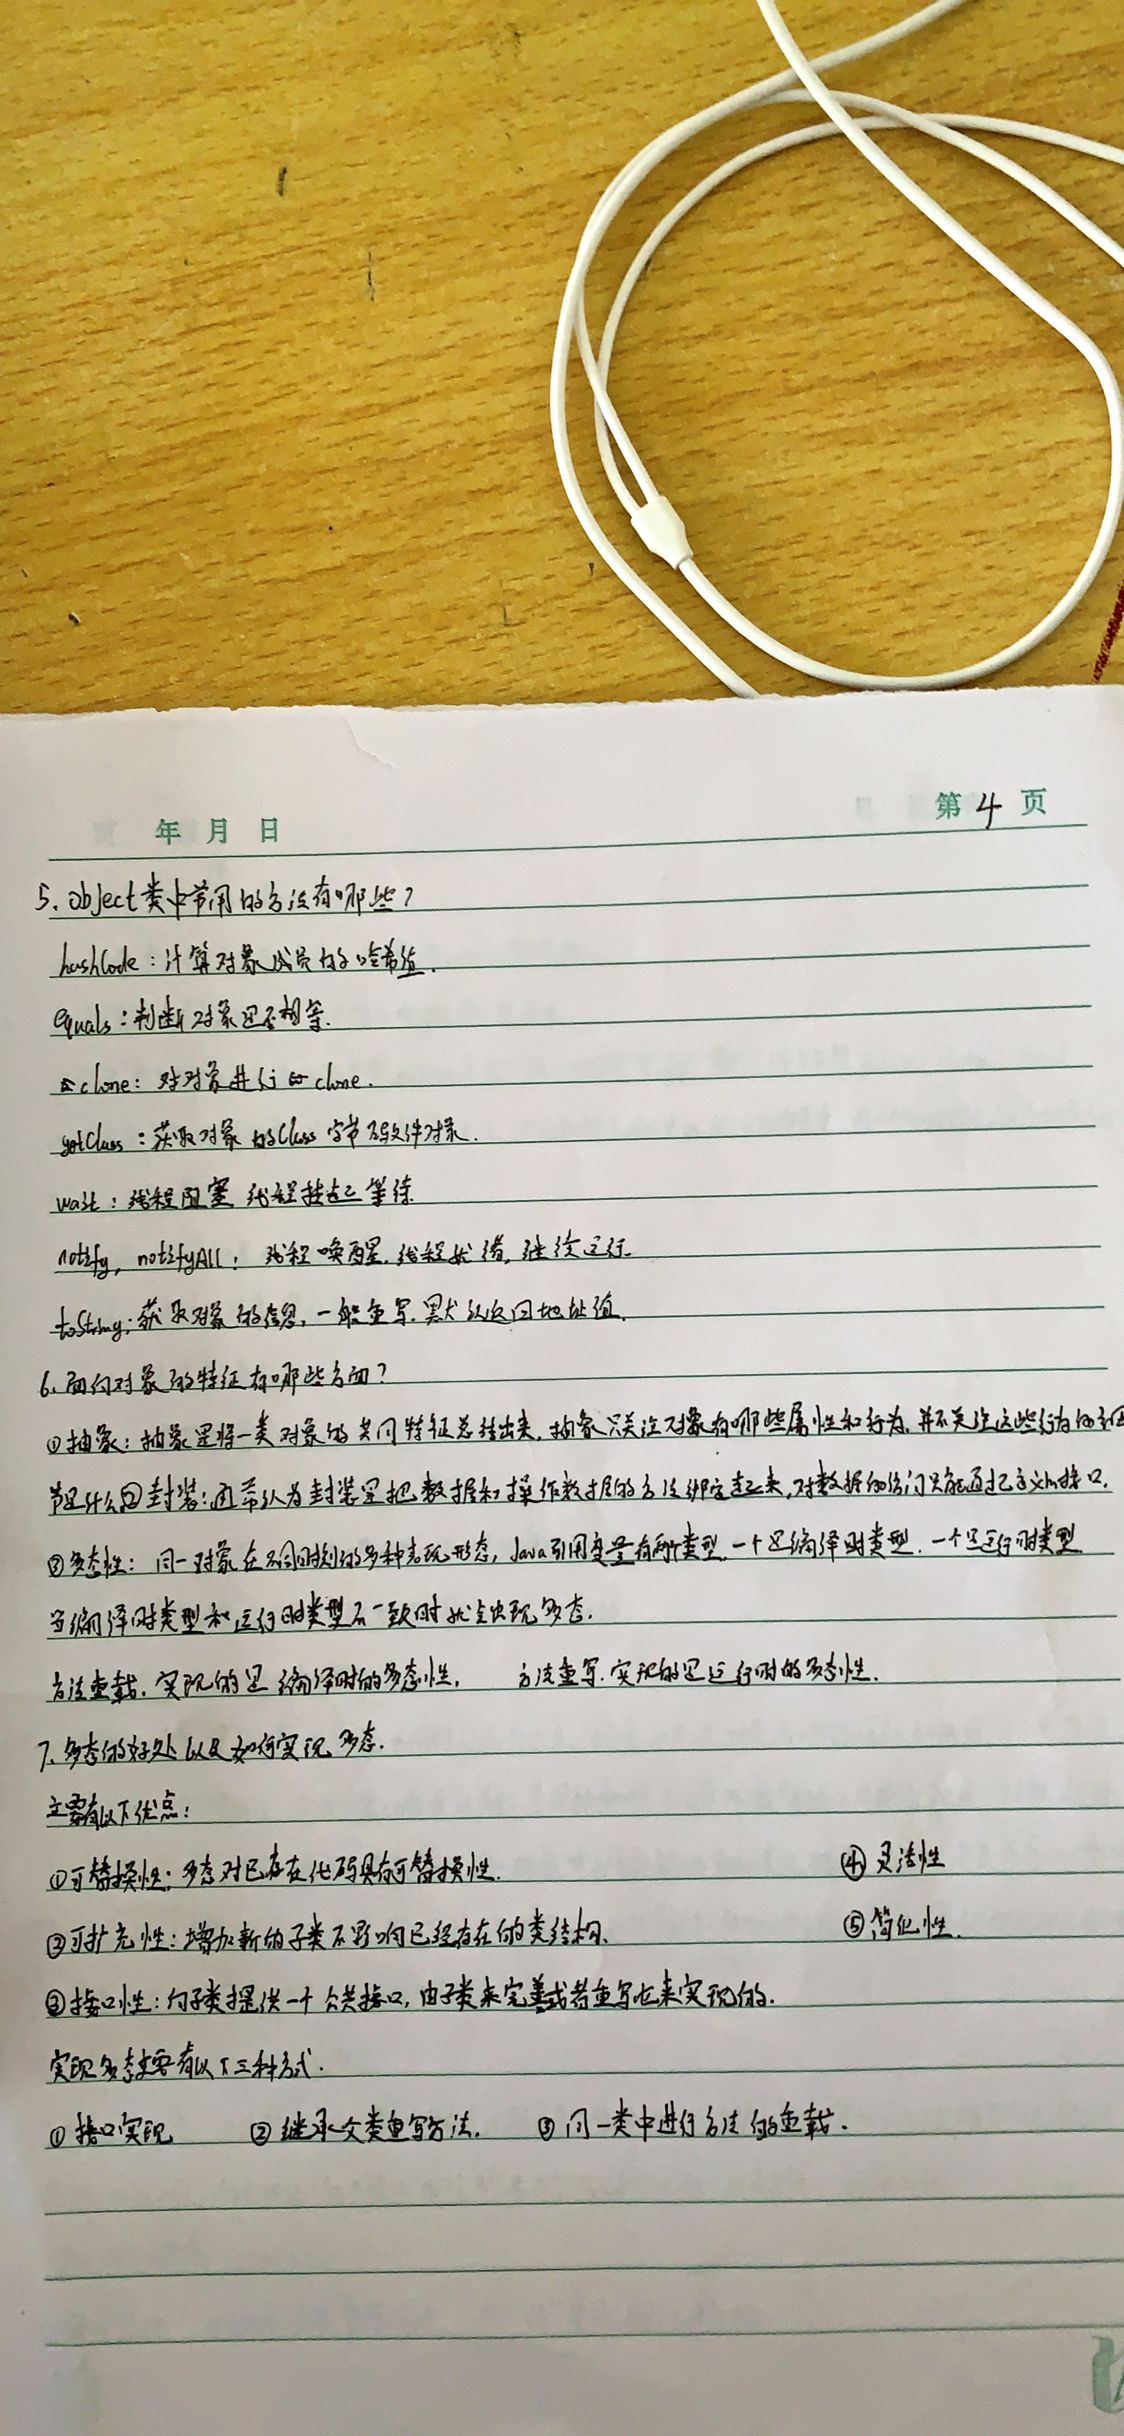 年 月 日
第 4 页
5. object类中常用的方法有哪些?
hashCode:计算对象成员的哈希值.
equals:判断对象是否相等.
clone:对对象进行 clone.
getClass:获取对象的Class字节码文件对象.
wait:线程阻塞,线程挂起等待
notify, notifyAll: 线程唤醒,线程就绪,继续运行.
toString:获取对象的信息,一般重写.默认返回地址值.
6. 面向对象的特征有哪些方面?
①抽象:抽象是将一类对象的共同特征总结出来,抽象只关注对象有哪些属性和行为,并不关注这些行为的细
节是什么②封装:通常认为封装是把数据和操作数据的方法绑定起来,对数据的访问只能通过已定义的接口.
③多态性: 同一对象在不同时刻的多种表现形态, Java引用变量有两个类型,一个是编译时类型,一个是运行时类型
当编译时类型和运行时类型不一致时就会出现多态.
方法重载,实现的是 编译时的多态性, 方法重写,实现的是运行时的多态性.
7.多态的好处以及如何实现多态.
主要有以下优点:
①可替换性:多态对已存在代码具有可替换性. ④灵活性
②可扩充性:增加新的子类不影响已经存在的类结构. ⑤简化性.
③接口性:向子类提供一个公共接口,由子类来完善或者重写它来实现的.
实现多态主要有以下三种方式.
①接口实现 ②继承父类重写方法. ③同一类中进行方法的重载.